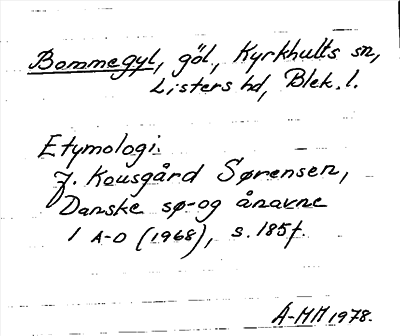 Bommegyl, göl, Kyrkhults sn,
Listers hd, Blek. l.
Etymologi:
J. Kousgård Sørensen,
Danske sø- og ånavne
1 A-D (1968), s. 185f.
A-MM 1978.